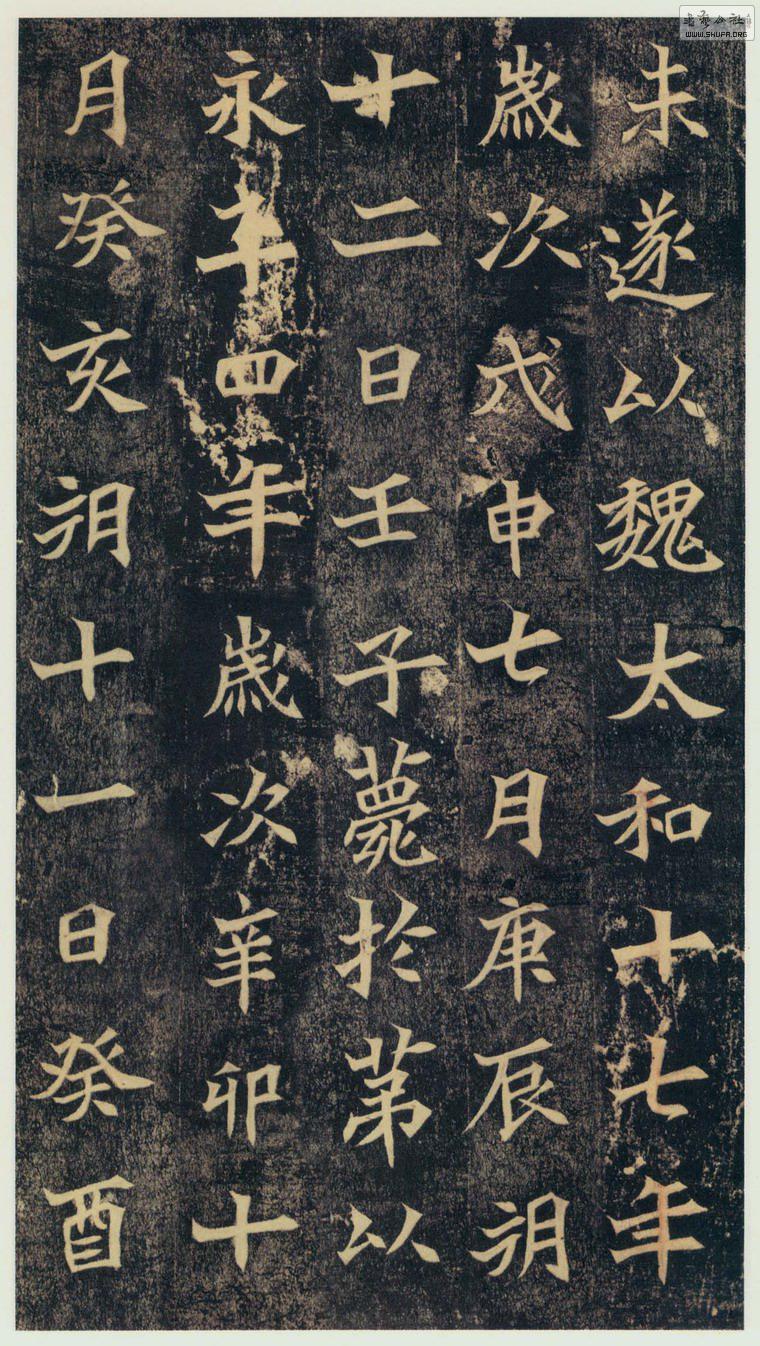 未遂以魏太和十七年
歲次戊申七月庚辰朔
十二日壬子薨於第以
永平四年歲次辛卯十
月癸亥朔十一日癸酉
WWW.SHUFA.ORG